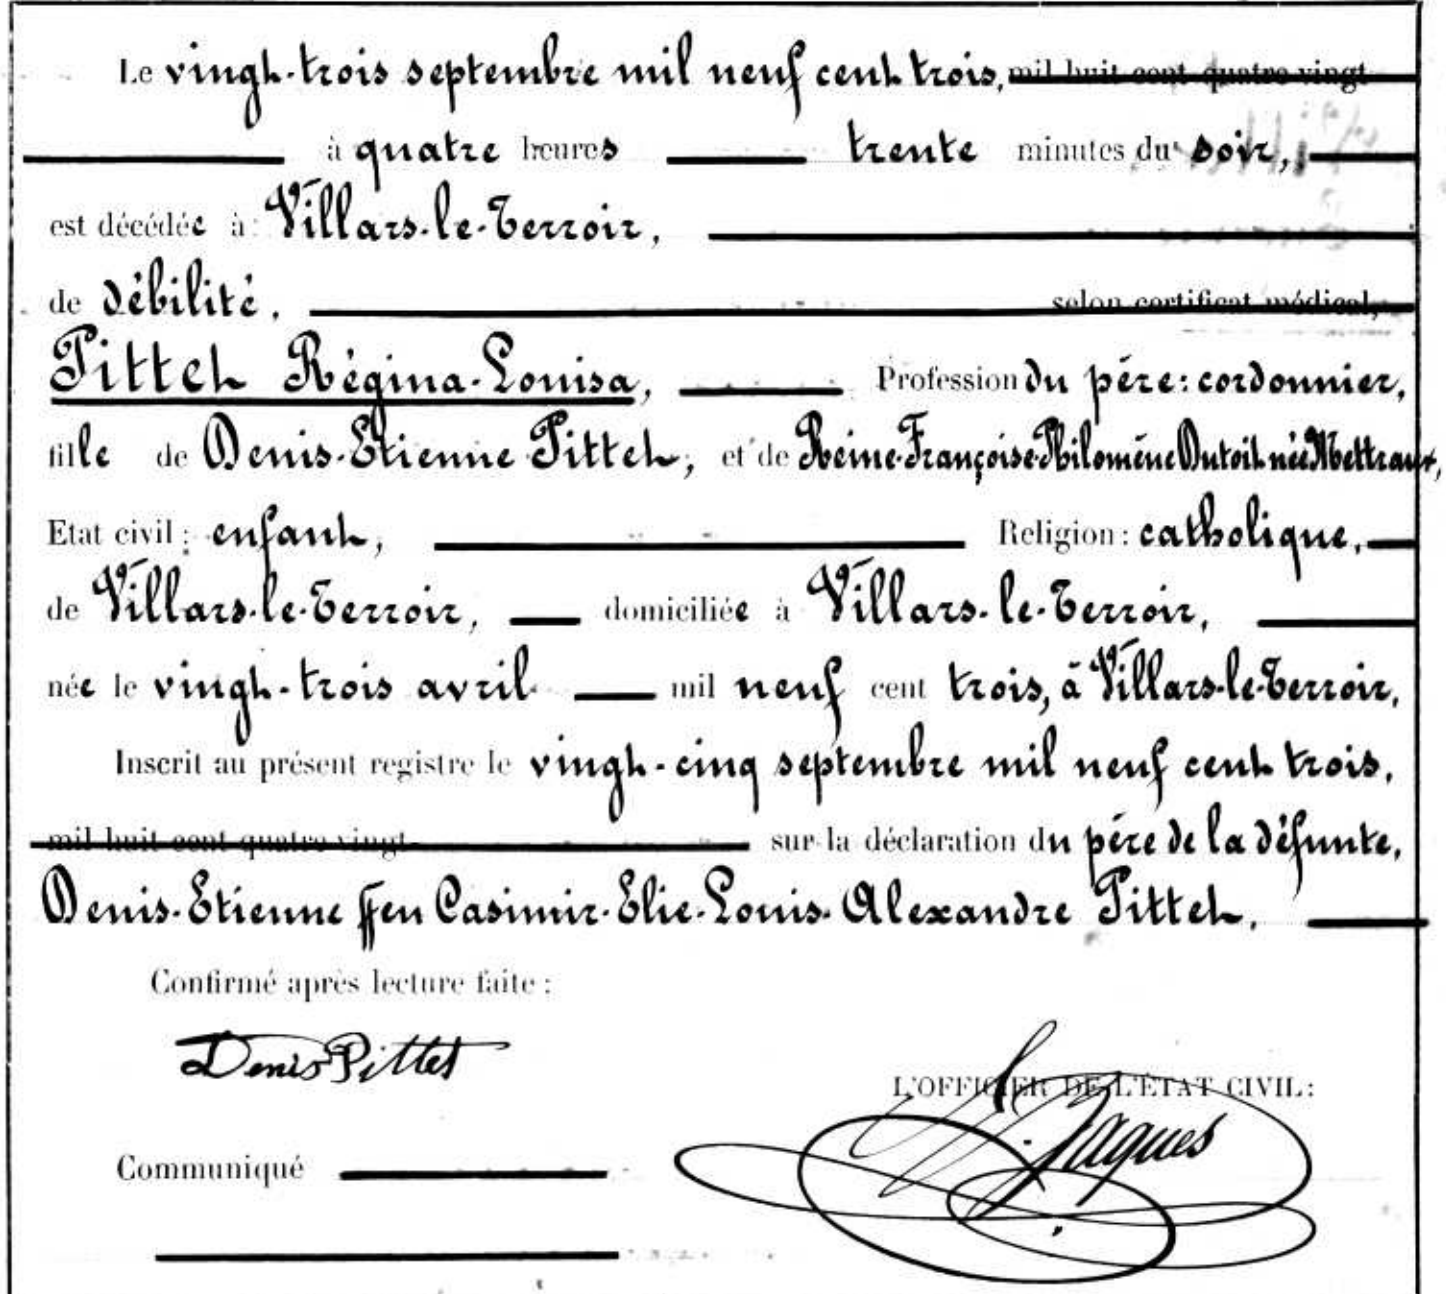 Le vingt-trois septembre mil neuf cent trois, mil huit cent quatre vingt
à quatre heures trente minutes du soir,
est décédée à Villars-le-Terroir,
de débilité, selon certificat médical,
Pittet Régina-Louisa, Profession du père: cordonnier,
fille de Denis-Etienne Pittet, et de Reine-Françoise-Philomène Dutoit née Mettraux,
Etat civil: enfant, Religion: catholique,
de Villars-le-Terroir, domiciliée à Villars-le-Terroir,
née le vingt-trois avril mil neuf cent trois, à Villars-le-Terroir,
Inscrit au présent registre le vingt-cinq septembre mil neuf cent trois,
mil huit cent quatre vingt sur la déclaration du père de la défunte,
Denis-Etienne ffeu Casimir-Elie-Louis-Alexandre Pittet,
Confirmé après lecture faite:
Denis Pittet
L'OFFICIER DE L'ÉTAT CIVIL:
Jaques
Communiqué